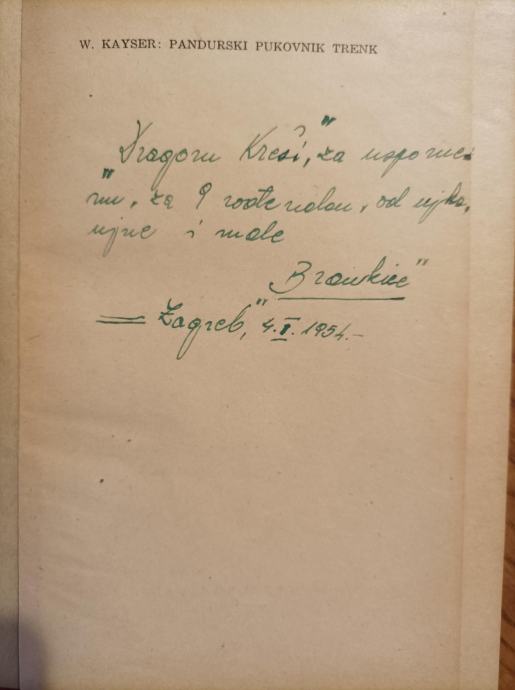 W. KAYSER: PANDURSKI PUKOVNIK TRENK
Dragom Kreši, "za uspome-
nu", za 9 rođendan, od ujka,
ujne i male
Brankice"
Zagreb," 4. I. 1954.-